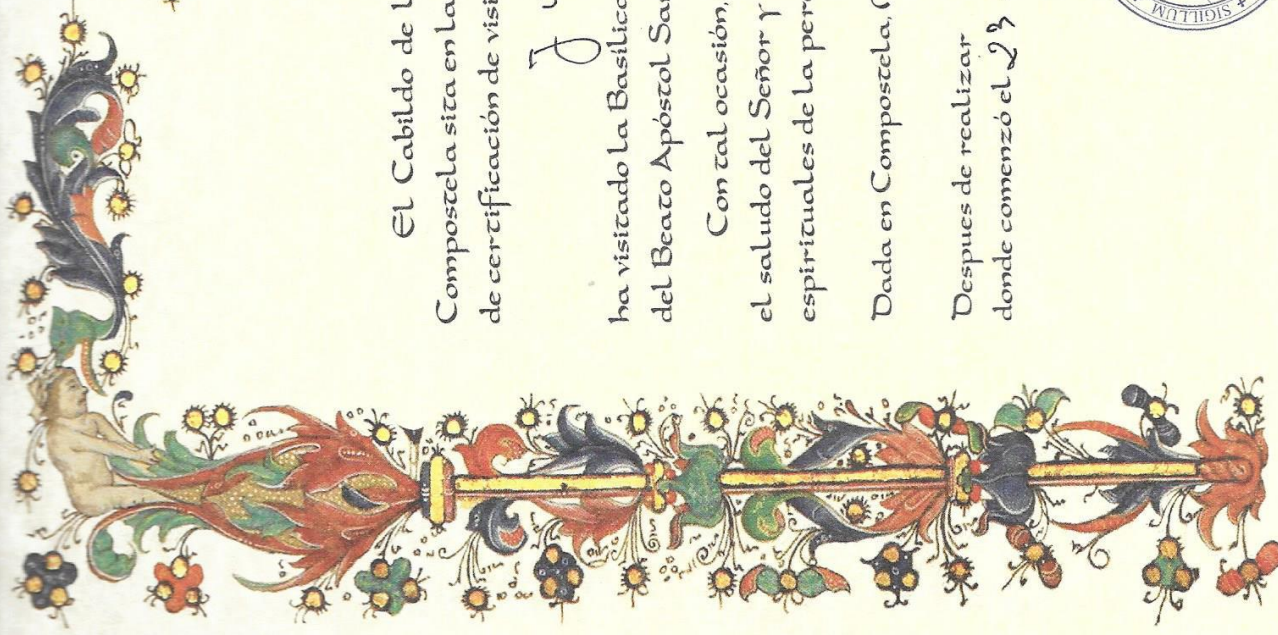 El Cabildo de
Compostela sita en la
de certificación de
ha visitado la
del Beato Apóstol
Con tal ocasión,
el saludo del Señor y
espirituales de la
Dada en Compostela,
Despues de realizar
donde comenzó el 23
SIGILLUM